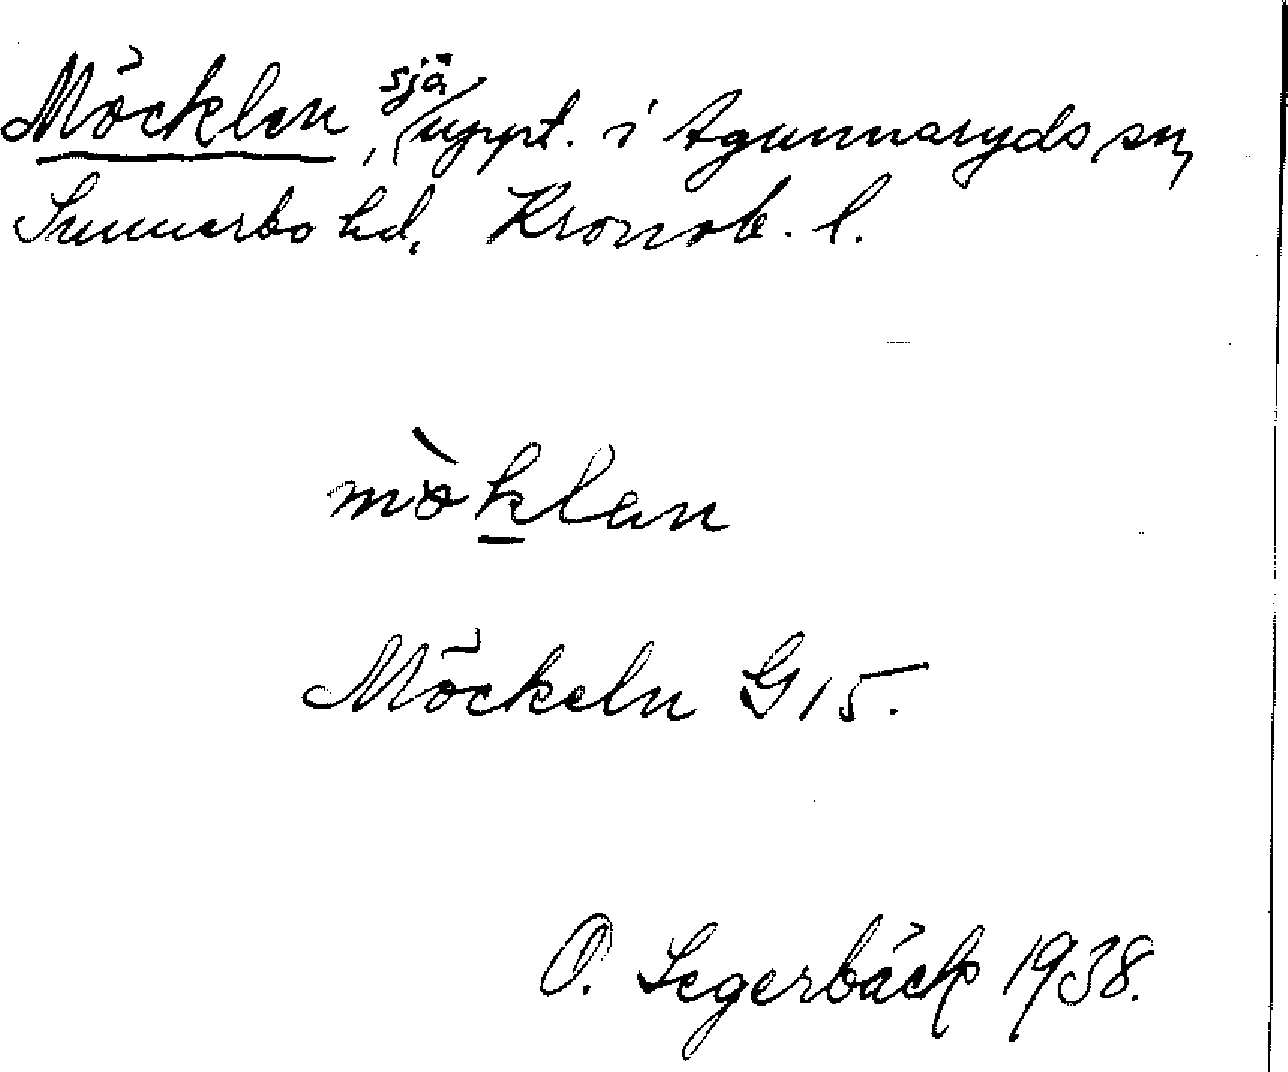 Möcklen, sjö, uppt. i Agunnaryds sn,
Sunnerbo hd, Kronob. l.
mòklen
Möckeln G 15.
O. Segerbäck 1938.